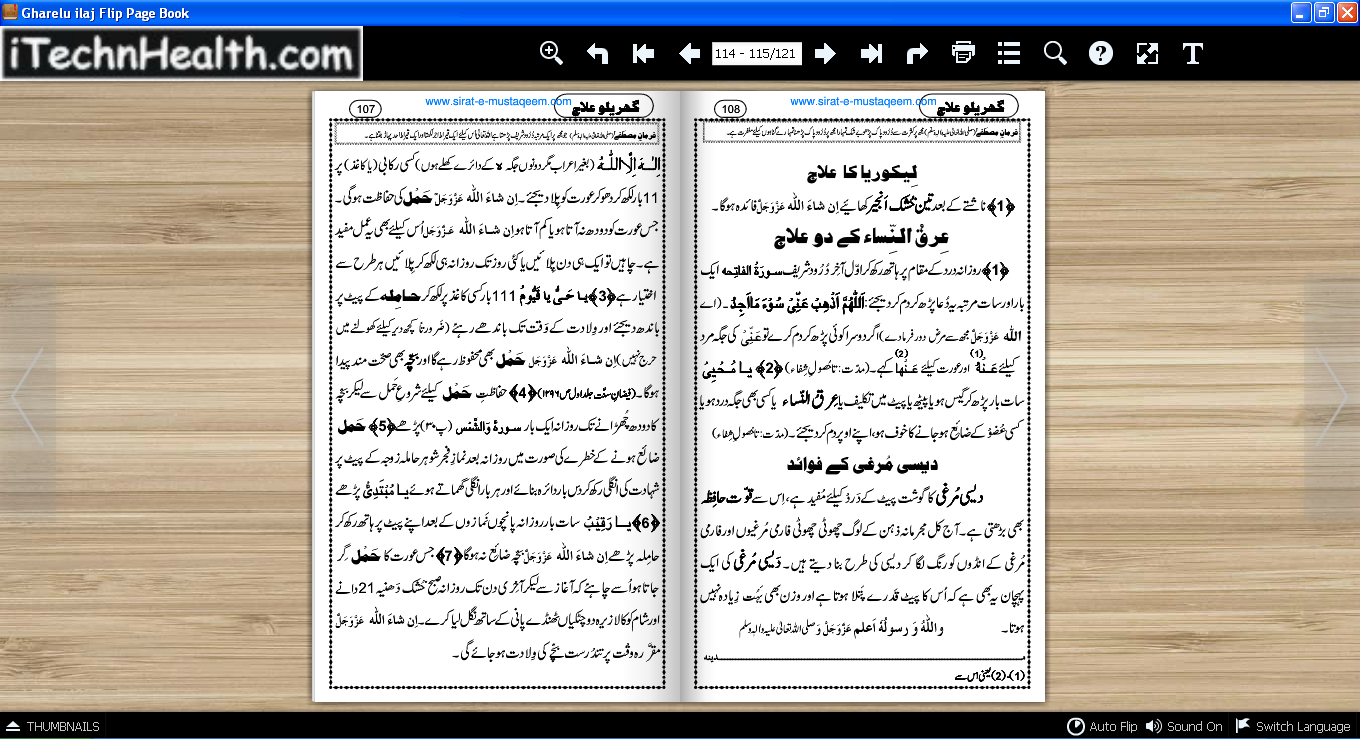 Gharelu ilaj Flip Page Book
iTechnHealth.com
114 - 115/121
T
107
www.sirat-e-mustaqeem.com
گھریلو علاج
اِلٰـهَ اِلَّا اللّٰـهُ (بغیر اعراب مگر دونوں جگہ ہ کے دائرے کھلے ہوں) کسی رِکابی (یا کاغذ) پر
11 بار لکھ کر دھو کر عورت کو پلا دیجئے۔ اِن شاءَ اللّٰہ عَزَّوَجَلَّ حَمْل کی حفاظت ہوگی۔
جس عورت کو دودھ نہ آتا ہو یا کم آتا ہو اِن شاءَ اللّٰہ عَزَّوَجَلَّ اُس کیلئے بھی یہ عمل مفید
ہے۔ چاہیں تو ایک ہی دن پلائیں یا کئی روز تک روزانہ ہی لکھ کر پلائیں ہر طرح سے
اختیار ہے ﴿3﴾ یا حَیُّ یا قَیُّومُ 111 بار کسی کاغذ پر لکھ کر حامِلہ کے پیٹ پر
باندھ دیجئے اور وِلادت کے وَقت تک باندھے رہئے (ضَرورتاً کچھ دیر کیلئے کھولنے میں
حرج نہیں) اِن شاءَ اللّٰہ عَزَّوَجَلَّ حَمْل بھی محفوظ رہے گا اور بچّہ بھی صحت مند پیدا
ہوگا۔ (فیضانِ سنّت جلد اول ص ۱۲۹۶) ﴿4﴾ حفاظتِ حَمْل کیلئے شُروعِ حَمل سے لیکر بچّہ
کا دودھ چُھڑانے تک روزانہ ایک بار سورۃُ وَالشَّمْس (پ ۳۰) پڑھے ﴿5﴾ حَمْل
ضائع ہونے کے خطرے کی صورت میں روزانہ بعد نمازِ فجر شوہر حاملہ زوجہ کے پیٹ پر
شہادت کی انگلی رکھ کر دس بار دائرہ بنائے اور ہر بار انگلی گھماتے ہوئے یا مُبْتَدِئُ پڑھے
﴿6﴾ یا رَقِیْبُ سات بار روزانہ پانچوں نَمازوں کے بعد اپنے پیٹ پر ہاتھ رکھ کر
حامِلہ پڑھے اِن شاءَ اللّٰہ عَزَّوَجَلَّ بچّہ ضائع نہ ہوگا ﴿7﴾ جس عورت کا حَمْل گِر
جاتا ہو اُسے چاہئے کہ آغاز سے لیکر آخِری دن تک روزانہ صبح خشک دَھنیہ 21 دانے
اور شام کو کالا زیرہ دو چٹکیاں ٹھنڈے پانی کے ساتھ نگل لیا کرے۔ اِن شاءَ اللّٰہ عَزَّوَجَلَّ
مقرَّرہ وقت پر تندُرست بچّے کی وِلادت ہو جائے گی۔
108
www.sirat-e-mustaqeem.com
گھریلو علاج
لیکوریا کا علاج
﴿1﴾ ناشتے کے بعد تین خشک اَنجیر کھائیے اِن شاءَ اللّٰہ عَزَّوَجَلَّ فائدہ ہوگا۔
عِرقُ النِّساء کے دو علاج
﴿1﴾ روزانہ درد کے مقام پر ہاتھ رکھ کر اوّل آخر دُرُود شریف سورۃُ الفاتحہ ایک
بار اور سات مرتبہ یہ دُعا پڑھ کر دم کر دیجئے: اَللّٰھُمَّ اَذْھِبْ عَنِّیْ سُوْءَ مَا اَجِدُ۔ (اے
اللّٰہ عَزَّوَجَلَّ مجھ سے مرض دور فرما دے) اگر دوسرا کوئی پڑھ کر دم کرے تو عَنِّیْ کی جگہ مرد
کیلئے عَنْہُ (1) اور عورت کیلئے عَنْھَا (2) کہے۔ (مدّت: تا حُصولِ شِفاء) ﴿2﴾ یا مُحْیِیْ
سات بار پڑھ کر گیس ہو یا پیٹھ یا پیٹ میں تکلیف یا عرق النّساء یا کسی بھی جگہ درد ہو یا
کسی عُضْو کے ضائع ہو جانے کا خوف ہو، اپنے اوپر دم کر دیجئے۔ (مدّت: تا حُصولِ شفاء)
دیسی مُرغی کے فوائد
دیسی مُرغی کا گوشت پیٹ کے دَرد کیلئے مُفید ہے، اِس سے قوّتِ حافِظہ
بھی بڑھتی ہے۔ آج کل مجرمانہ ذہن کے لوگ چھوٹی چھوٹی فارمی مُرغیوں اور فارمی
مُرغی کے انڈوں کو رنگ لگا کر دیسی کی طرح بنا دیتے ہیں۔ دَیسی مُرغی کی ایک
پہچان یہ بھی ہے کہ اُس کا پیٹ قدرے پتلا ہوتا ہے اور وزن بھی بہُت زِیادہ نہیں
ہوتا۔ واللّٰہُ وَ رسولُہٗ اَعلم عَزَّوَجَلَّ وَ صلی اللہ تعالیٰ علیہ واٰلہٖ وسلّم
مدینہ
(1)،(2) یعنی اس سے
THUMBNAILS
Auto Flip Sound On Switch Language